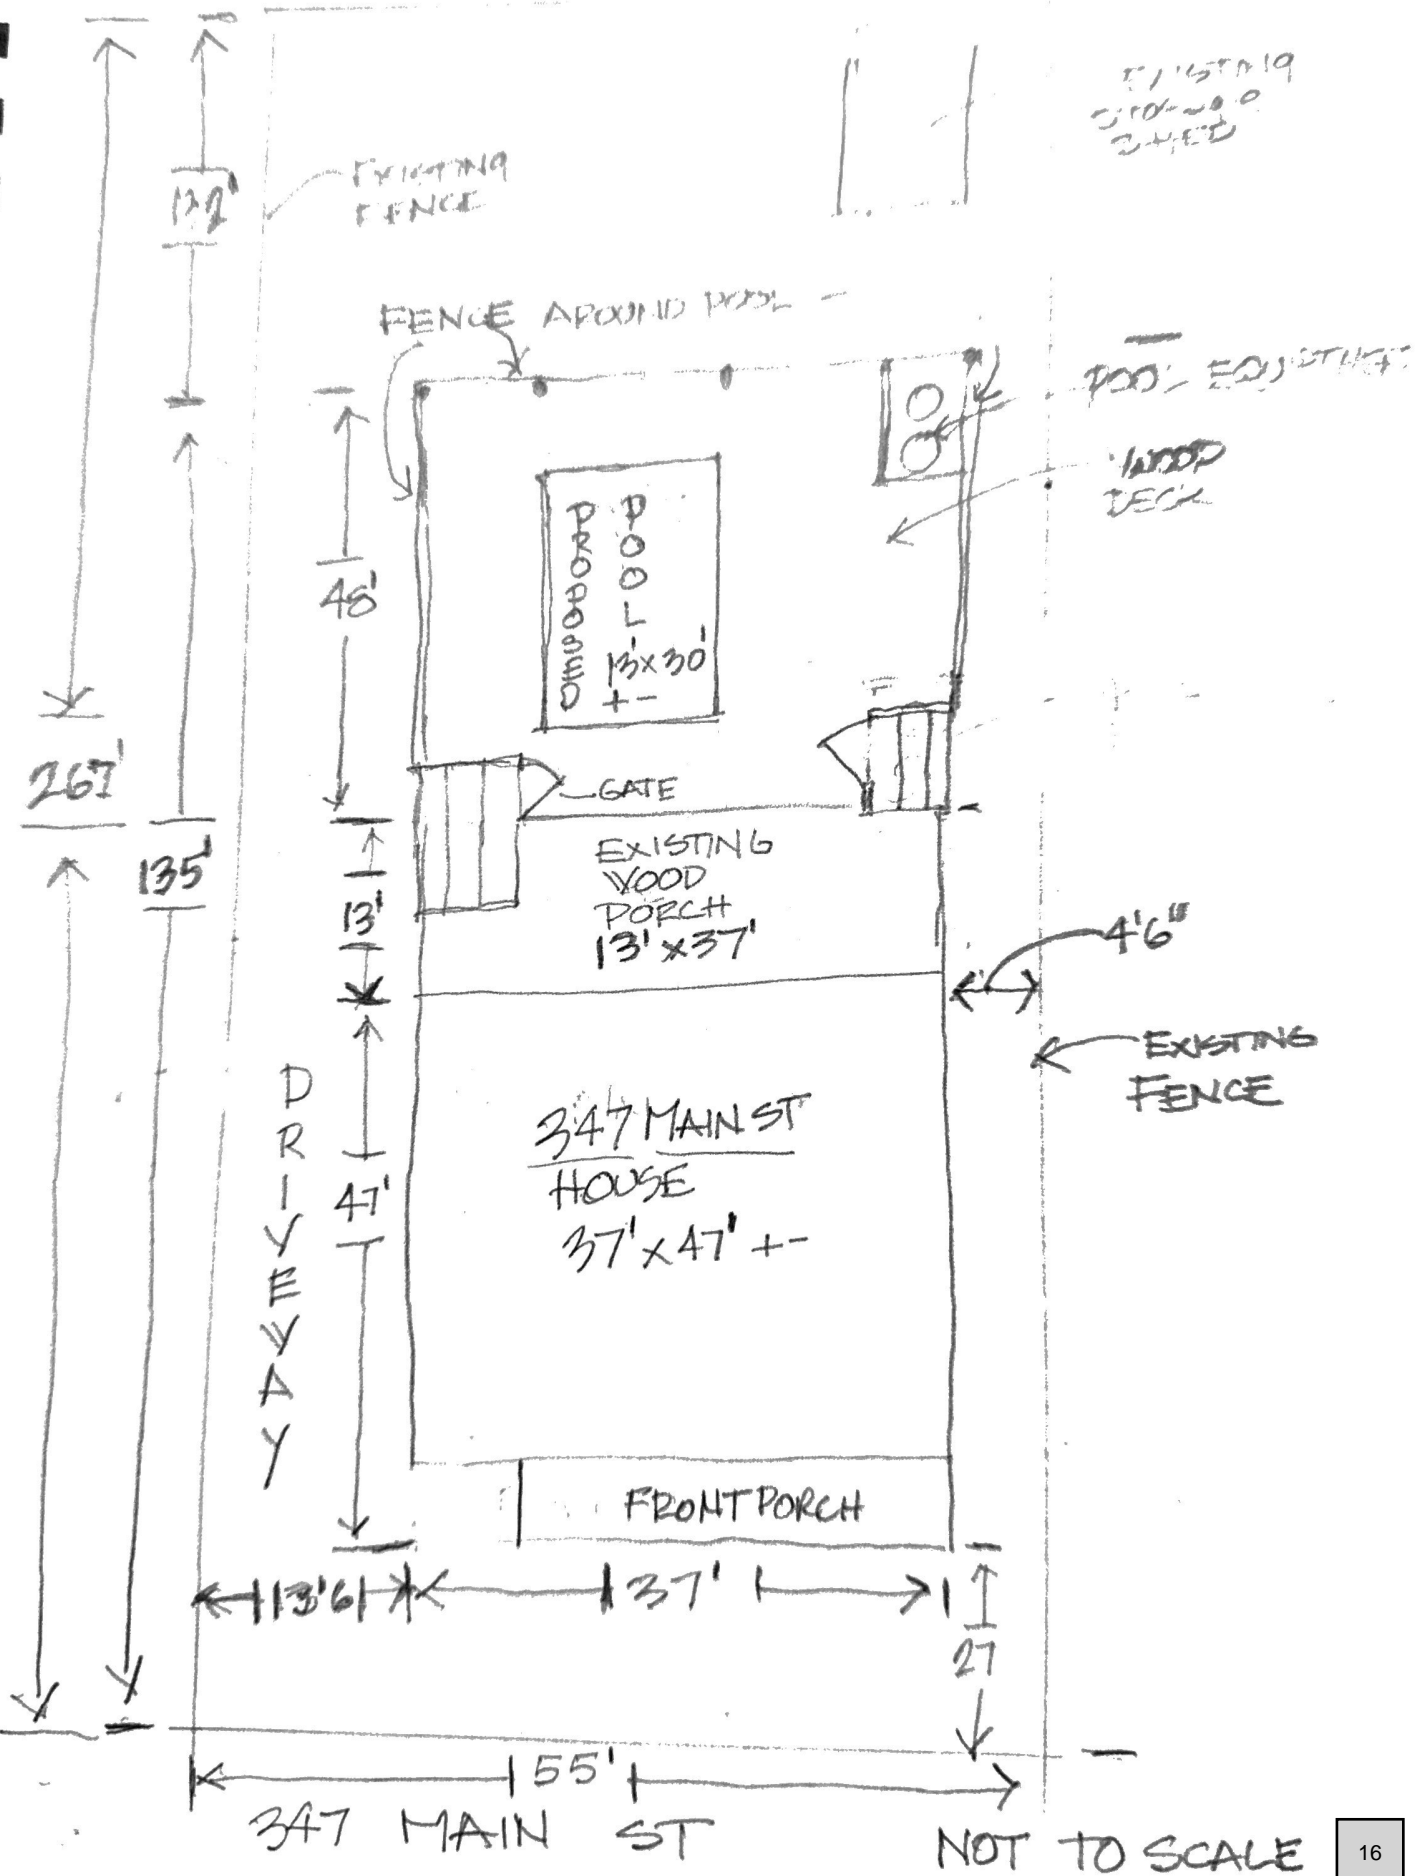 EXISTING
SHED
132'
EXISTING
FENCE
FENCE AROUND POOL
POOL EQUIPMENT
WOOD
DECK
PROPOSED
POOL
13'x30'
+-
48'
267'
GATE
135'
EXISTING
WOOD
PORCH
13'x37'
13'
4'6"
EXISTING
FENCE
DRIVEWAY
347 MAIN ST
HOUSE
37'x47' +-
47'
FRONT PORCH
13'6
37'
27
55'
347 MAIN ST
NOT TO SCALE
16